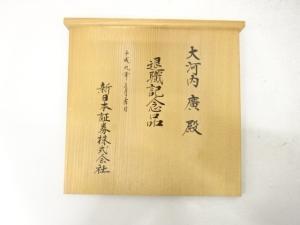 大河内廣殿
退職記念品
平成九年三月吉日
新日本証券株式会社